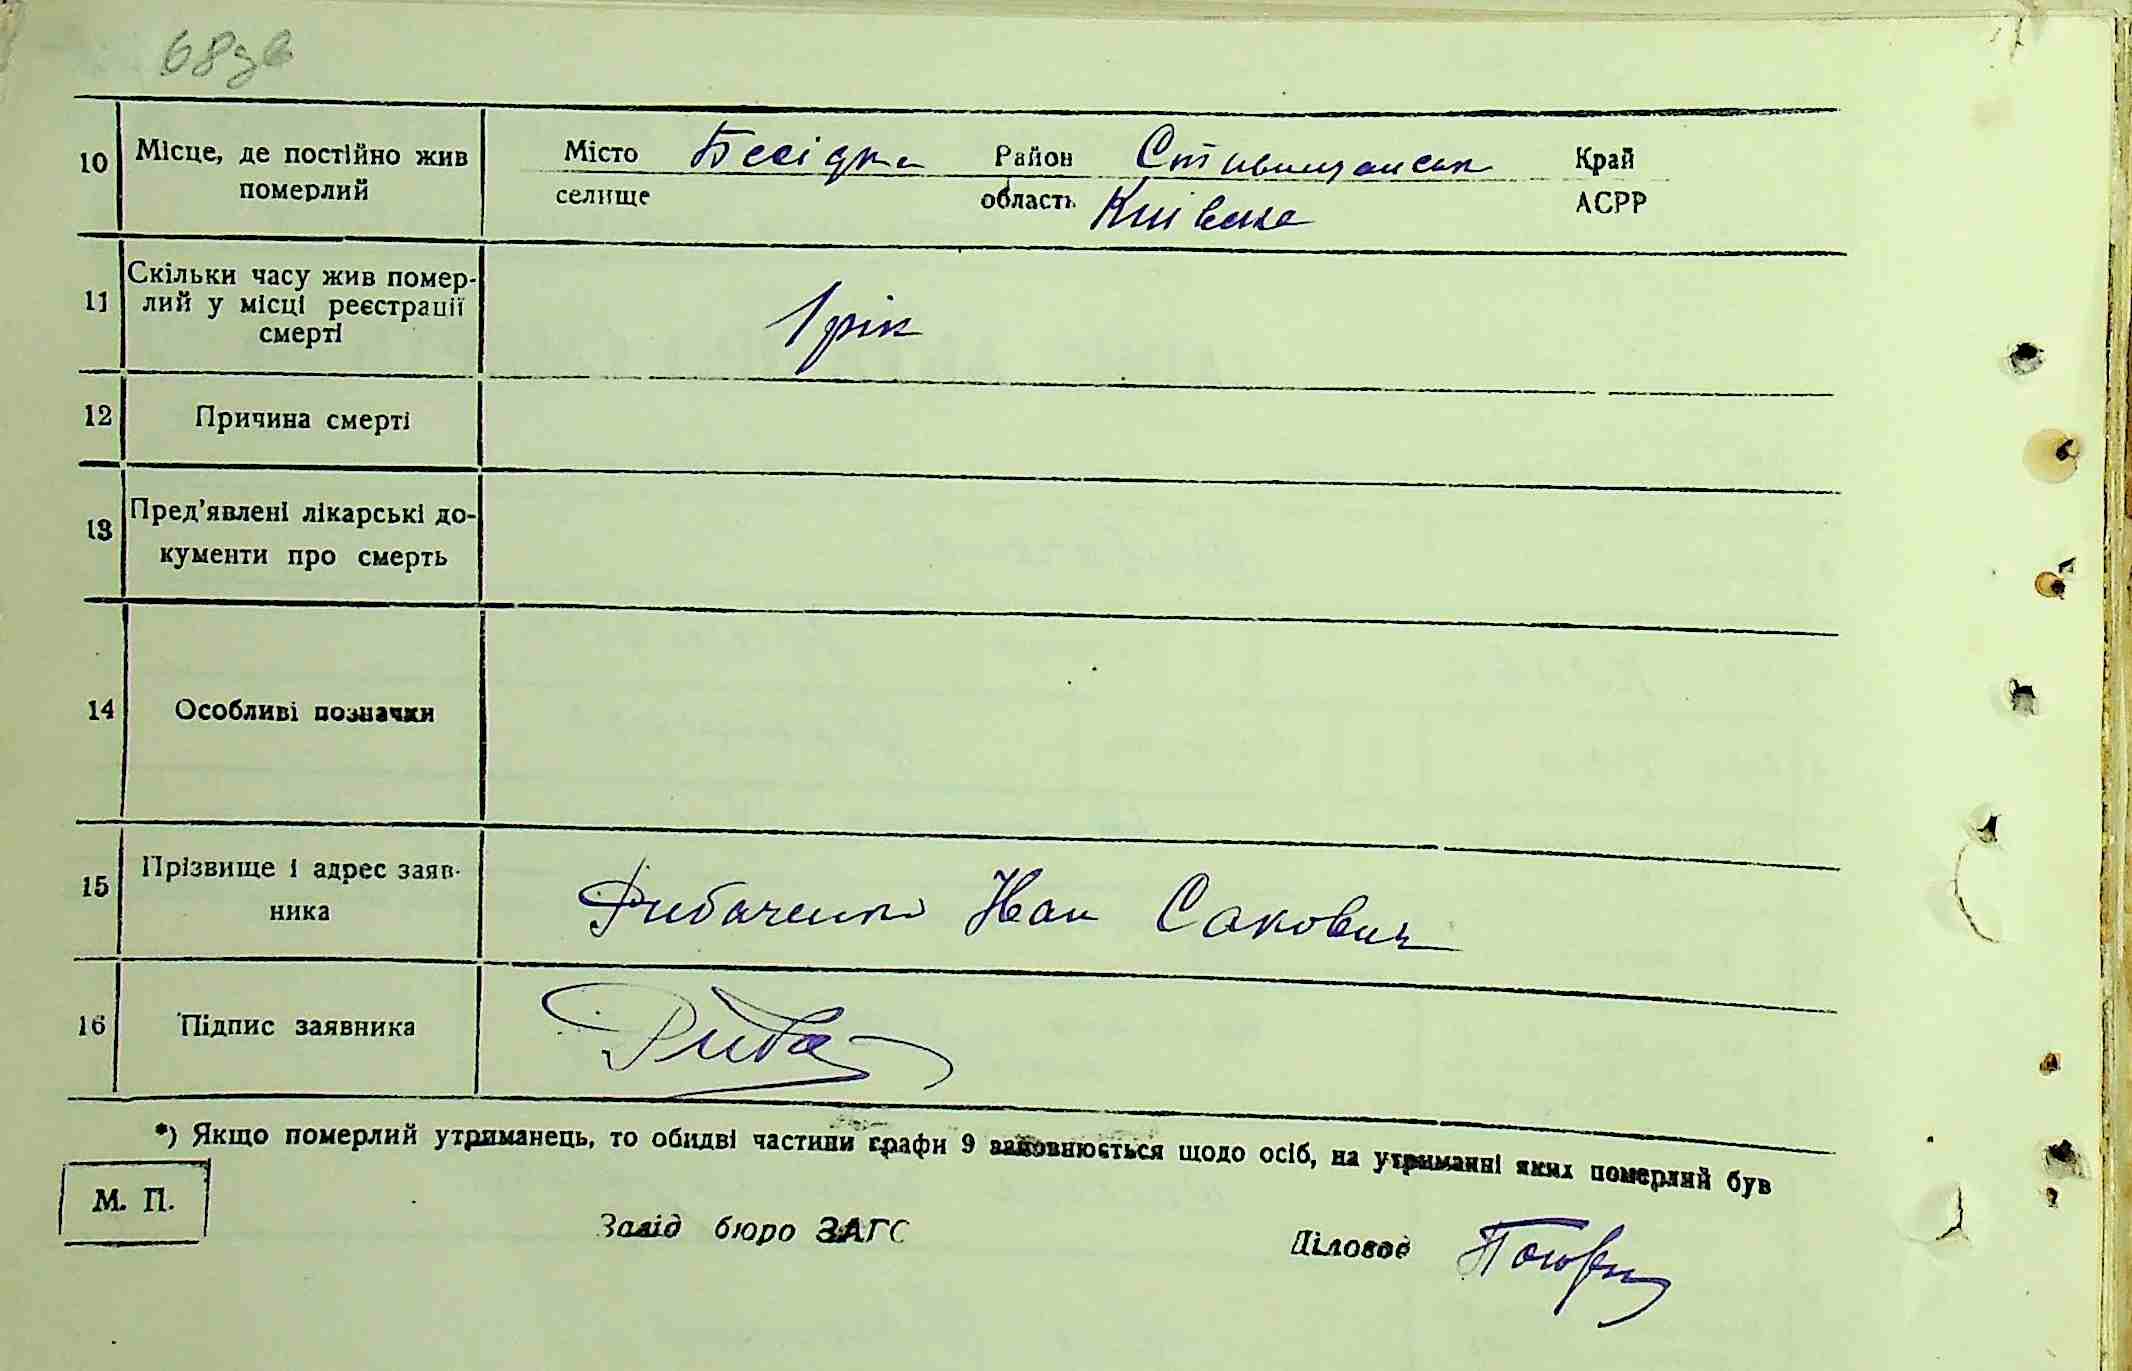 68зв
10 Місце, де постійно жив померлий Місто Бесідка Район Ставищанськ Край
селище область Київська АСРР
11 Скільки часу жив помер-
лий у місці реєстрації
смерті
1 рік
12 Причина смерті
13 Пред'явлені лікарські до-
кументи про смерть
14 Особливі позначки
15 Прізвище і адрес заяв-
ника
Рибаченко Іван Сакович
16 Підпис заявника Риба
*) Якщо померлий утриманець, то обидві частини графи 9 заповнюється щодо осіб, на утриманні яких померлий був
М. П.
Завід бюро ЗАГС Діловод